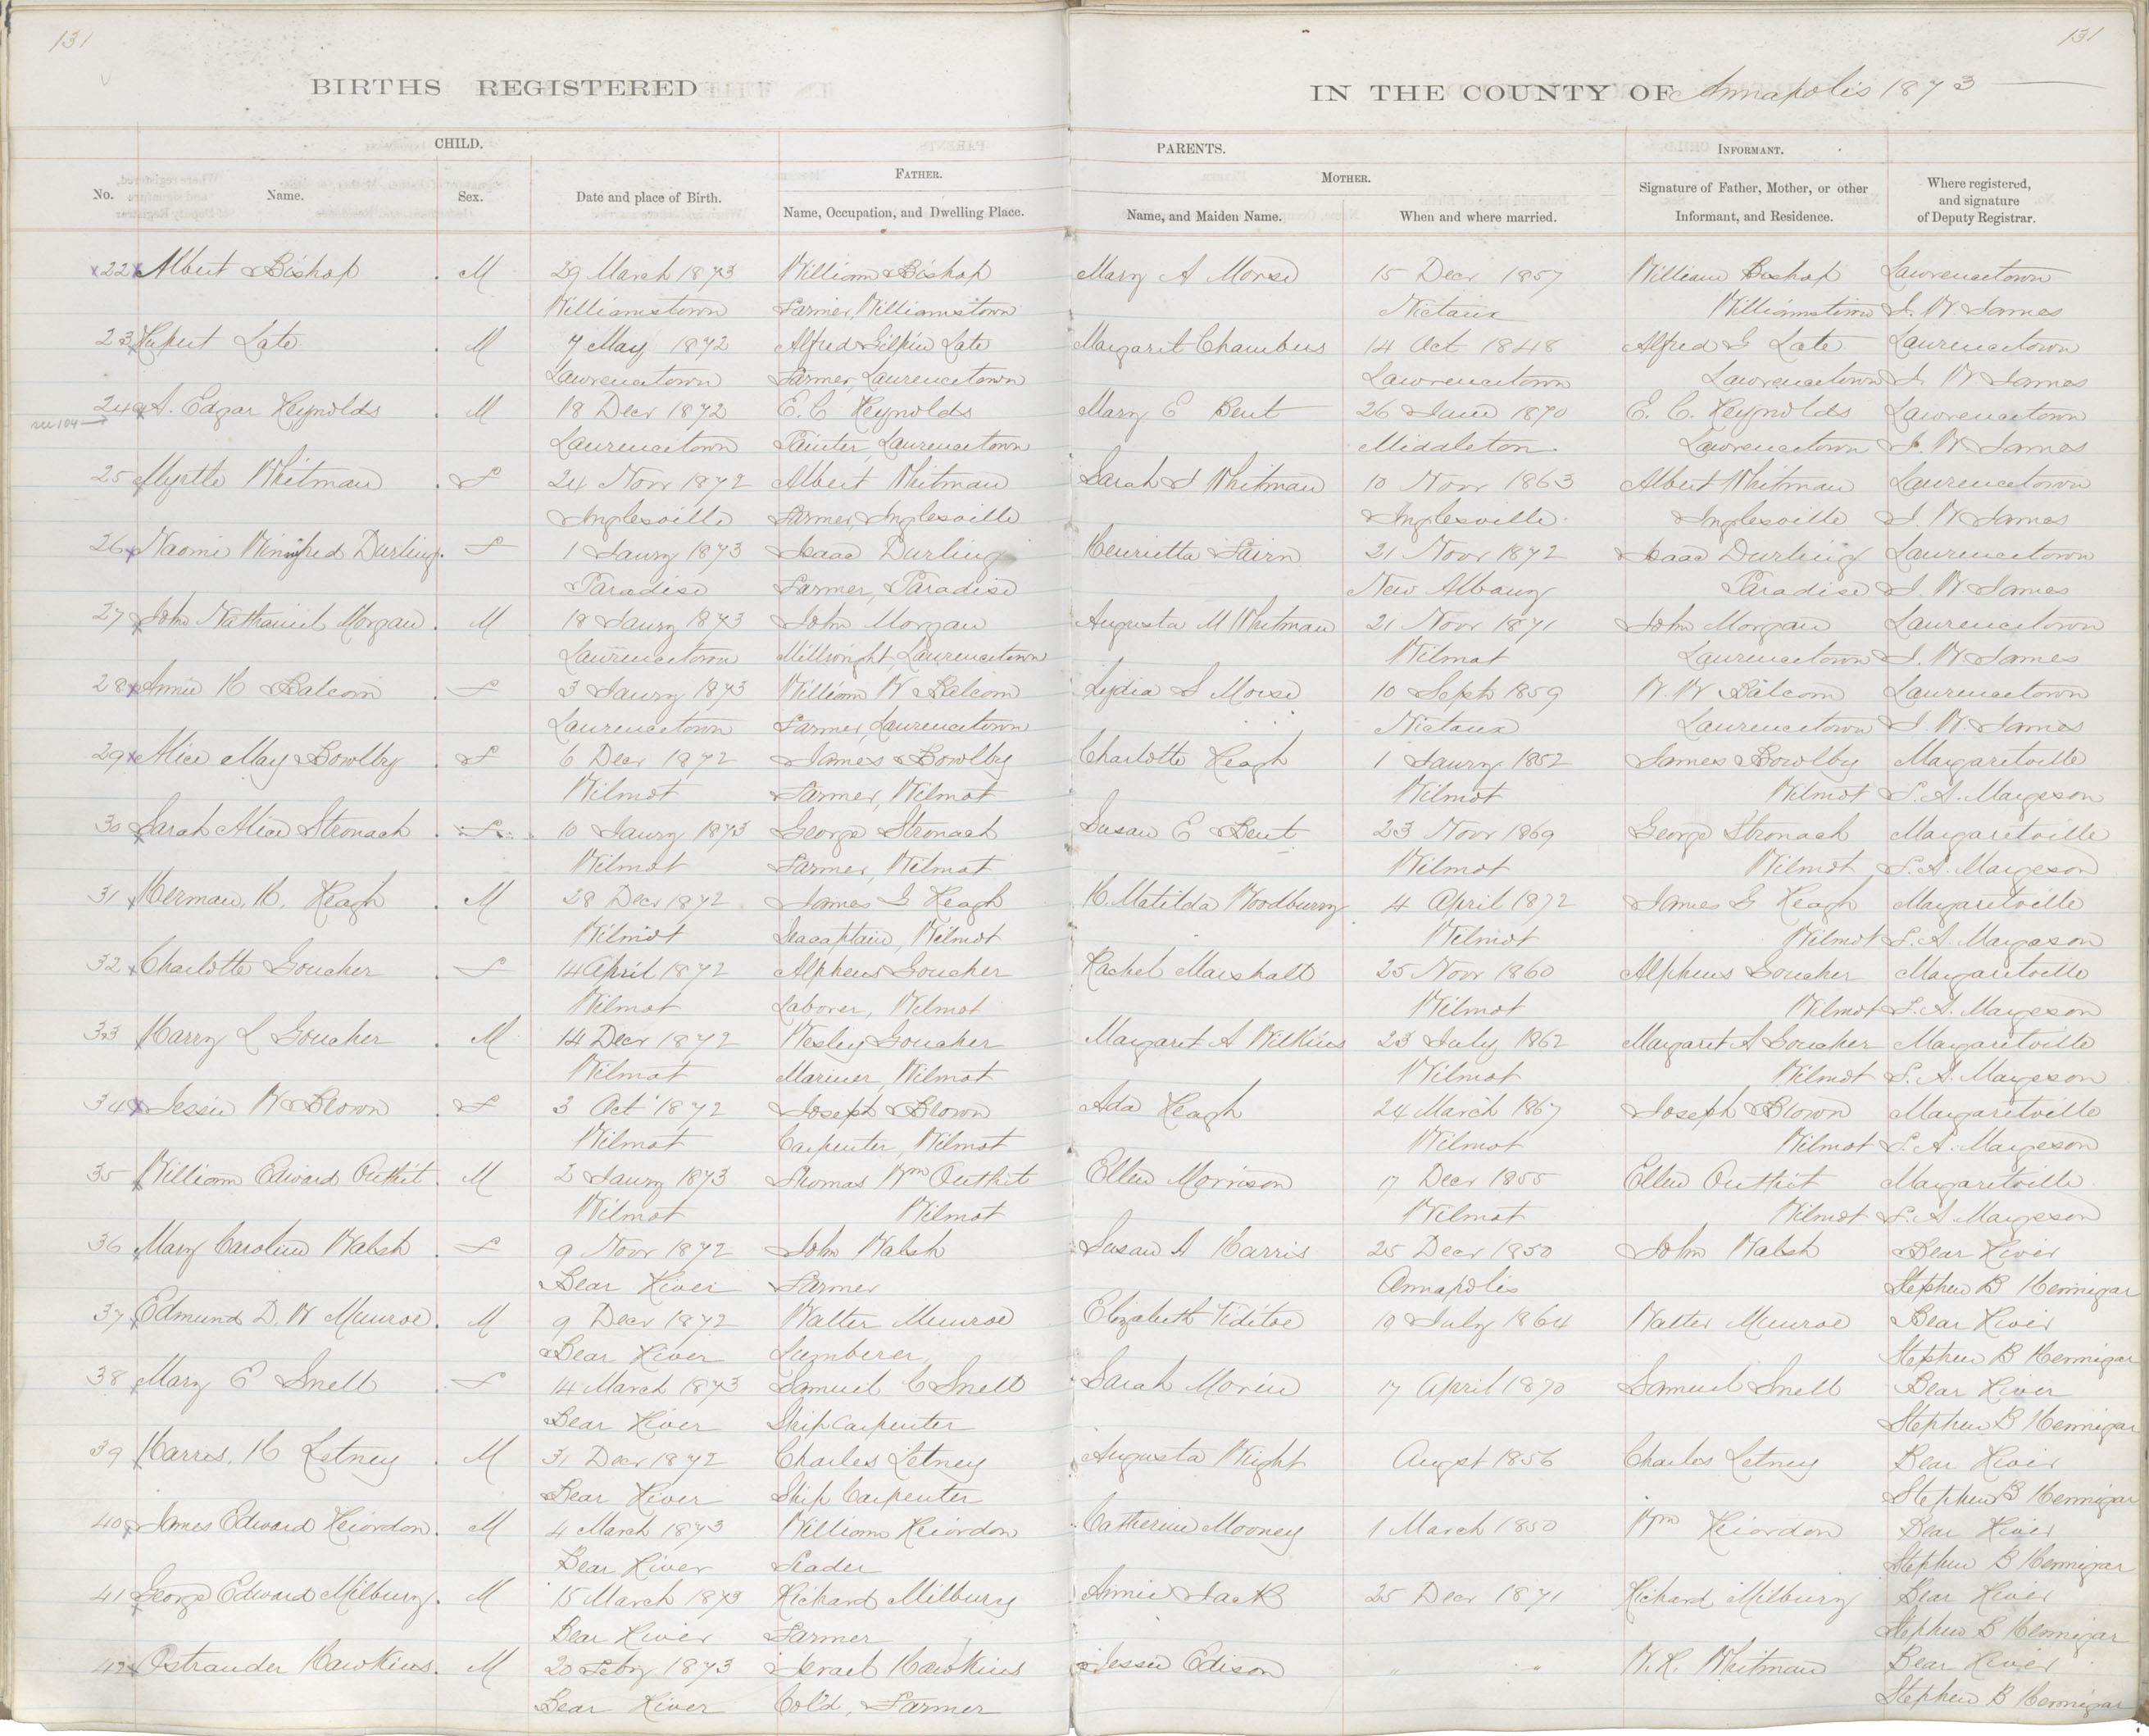 131
131
BIRTHS REGISTERED
IN THE COUNTY OF Annapolis 1873
CHILD.
PARENTS.
INFORMANT.
No.
Name.
Sex.
Date and place of Birth.
FATHER.
Name, Occupation, and Dwelling Place.
MOTHER.
Name, and Maiden Name.
When and where married.
Signature of Father, Mother, or other
Informant, and Residence.
Where registered,
and signature
of Deputy Registrar.
22 Albert Bishop M 29 March 1873 William Bishop Mary A Morse 15 Decr 1857 William Bishop Lawrencetown
Williamstown Farmer, Williamstown Nictaux Williamstown J. W. James
23 Rupert Late M 7 May 1872 Alfred Gilpin Late Margaret Chambers 14 Oct 1848 Alfred G Late Lawrencetown
Lawrencetown Farmer, Lawrencetown Lawrencetown Lawrencetown J. W James
24 A. Edgar Reynolds M 18 Decr 1872 E. C Reynolds Mary E Bent 26 June 1870 E. C. Reynolds Lawrencetown
see 104 → Lawrencetown Painter, Lawrencetown Middleton Lawrencetown J. W. James
25 Myrtle Whitman F 24 Novr 1872 Albert Whitman Sarah J Whitman 10 Novr 1863 Albert Whitman Lawrencetown
Inglesville Farmer, Inglesville Inglesville Inglesville J. W James
26 Naomi Winifred Durling F 1 Jaury 1873 Isaac Durling Henrietta Fairn 21 Novr 1872 Isaac Durling Lawrencetown
Paradise Farmer, Paradise New Albany Paradise J. W. James
27 John Nathaniel Morgan M 18 Jaury 1873 John Morgan Augusta M Whitman 21 Novr 1871 John Morgan Lawrencetown
Lawrencetown Millwright, Lawrencetown Wilmot Lawrencetown J. W. James
28 Annie H Balcom F 3 Jaury 1873 William W Balcom Lydia S Morse 10 Septr 1859 W. W Balcom Lawrencetown
Lawrencetown Farmer, Lawrencetown Nictaux Lawrencetown J. W. James
29 Alice May Bowlby F 6 Decr 1872 James Bowlby Charlotte Reagh 1 Jaury 1852 James Bowlby Margaretville
Wilmot Farmer, Wilmot Wilmot Wilmot S. A. Margeson
30 Sarah Alice Stronach F 10 Jaury 1873 George Stronach Susan E Bent 23 Novr 1869 George Stronach Margaretville
Wilmot Farmer, Wilmot Wilmot Wilmot S. A. Margeson
31 Herman H. Reagh M 28 Decr 1872 James G Reagh H. Matilda Woodbury 4 April 1872 James G Reagh Margaretville
Wilmot Seacaptain, Wilmot Wilmot Wilmot S. A. Margeson
32 Charlotte Goucher F 14 April 1872 Alpheus Goucher Rachel Marshall 25 Novr 1860 Alpheus Goucher Margaretville
Wilmot Laborer, Wilmot Wilmot Wilmot S. A. Margeson
33 Harry L Goucher M 14 Decr 1872 Wesley Goucher Margaret A Wilkins 23 July 1862 Margaret A Goucher Margaretville
Wilmot Mariner, Wilmot Wilmot Wilmot S. A. Margeson
34 Jessie W Brown F 3 Oct 1872 Joseph Brown Ada Reagh 24 March 1867 Joseph Brown Margaretville
Wilmot Carpenter, Wilmot Wilmot Wilmot S. A. Margeson
35 William Edward Outhit M 2 Jaury 1873 Thomas Wm Outhit Ellen Morrison 17 Decr 1855 Ellen Outhit Margaretville
Wilmot Wilmot Wilmot Wilmot S. A Margeson
36 Mary Caroline Walsh F 9 Novr 1872 John Walsh Susan A Harris 25 Decr 1850 John Walsh Bear River
Bear River Farmer Annapolis Stephen B Hennigar
37 Edmund D. W Munroe M 9 Decr 1872 Walter Munroe Elizabeth Tiditoe 10 July 1864 Walter Munroe Bear River
Bear River Lumberer Stephen B Hennigar
38 Mary E Snell F 14 March 1873 Samuel C Snell Sarah Morine 17 April 1870 Samuel Snell Bear River
Bear River Ship Carpenter Stephen B Hennigar
39 Harris H Letney M 31 Decr 1872 Charles Letney Augusta Wright Augst 1856 Charles Letney Bear River
Bear River Ship Carpenter Stephen B Hennigar
40 James Edward Reiordon M 4 March 1873 William Reiordon Catherine Mooney 1 March 1850 Wm Reiordon Bear River
Bear River Stephen B Hennigar
41 George Edward Milbury M 15 March 1873 Richard Milbury Annie Jack 25 Decr 1871 Richard Milbury Bear River
Bear River Farmer Stephen B Hennigar
42 Ostrander Hawkins M 20 Febry 1873 Israel Hawkins Jessie Edison " " W. R. Whitman Bear River
Bear River Col'd, Farmer Stephen B Hennigar